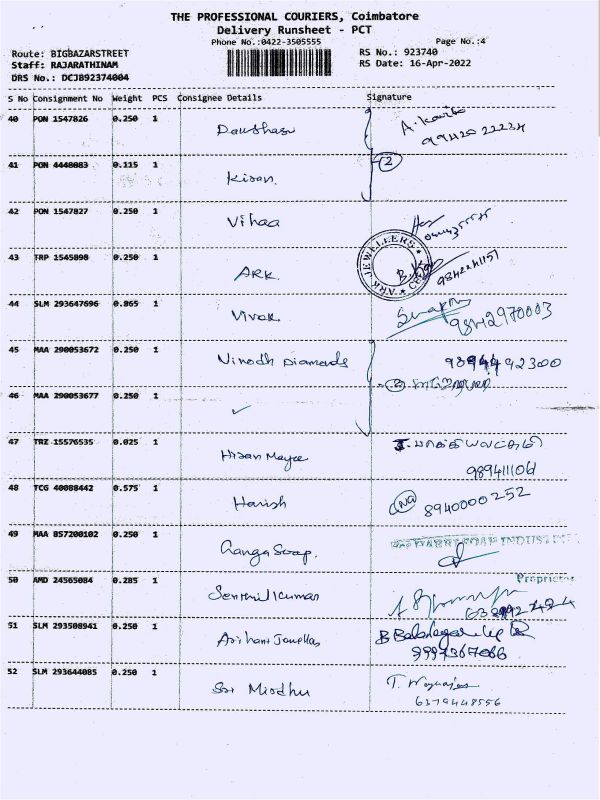 THE PROFESSIONAL COURIERS, Coimbatore
Delivery Runsheet - PCT
Phone No.:0422-3505555 Page No.:4
Route: BIGBAZARSTREET RS No.: 923740
Staff: RAJARATHINAM RS Date: 16-Apr-2022
DRS No.: DCJB92374004
S No Consignment No Weight PCS Consignee Details Signature
40 PON 1547826 0.250 1
41 PON 4448083 0.115 1 Kiran. 2
42 PON 1547827 0.250 1 Vihaa
43 TRP 1545898 0.250 1 ARK.
ARK JEWELLERS
44 SLM 293647696 0.865 1 Vivak
9842970003
45 MAA 290053672 0.250 1 Vinodh Diamonds
46 MAA 290053677 0.250 1 ✓
47 TRZ 15576535 0.025 1
48 TCG 40088442 0.575 1 Harish 8940000252
49 MAA 857200102 0.250 1 Ganga Soap.
50 AMD 24565084 0.285 1 Senthilkumar
Proprietor
51 SLM 293508941 0.250 1
52 SLM 293644085 0.250 1 Sri
6179448556